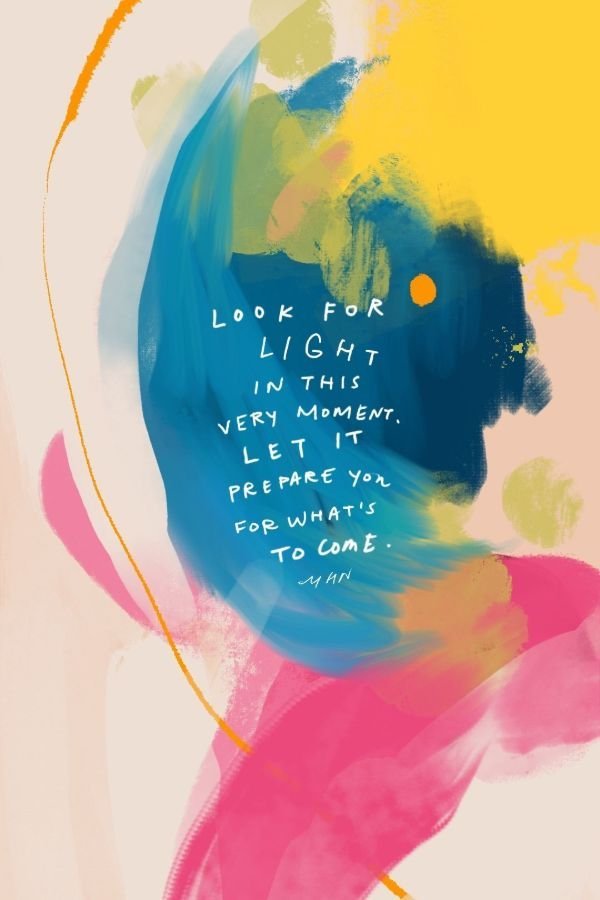 LOOK FOR
LIGHT
IN THIS
VERY MOMENT.
LET IT
PREPARE YOU
FOR WHAT'S
TO COME.
MHN